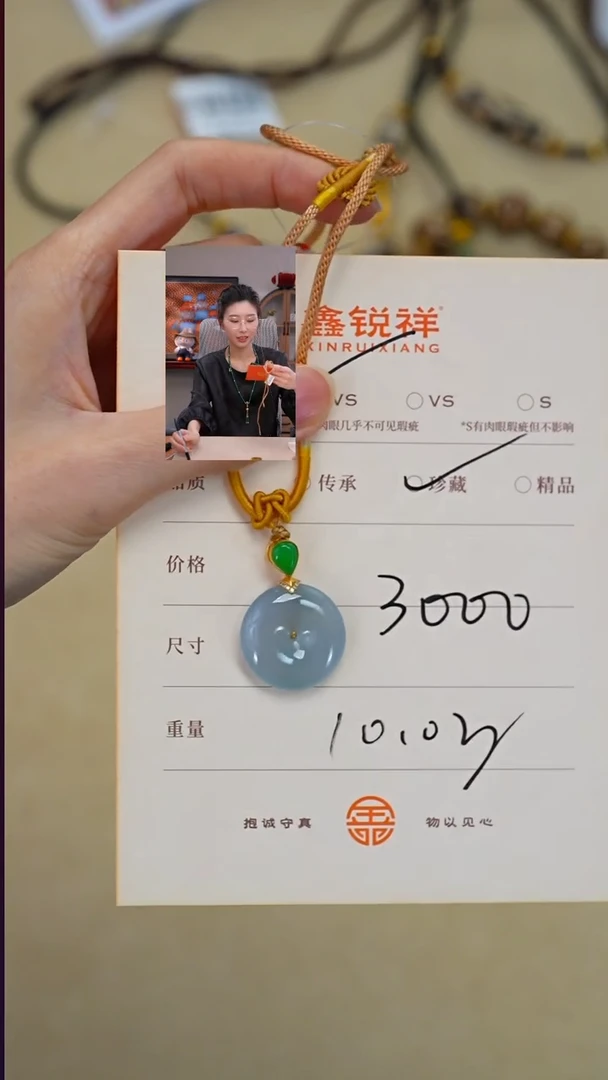 鑫锐祥
XINRUIXIANG
VS ○VS ○S
肉眼几乎不可见瑕疵 *S有肉眼瑕疵但不影响
品质 传承 ○珍藏 ○精品
价格 3000
尺寸
重量 10.02g
抱诚守真 物以见心